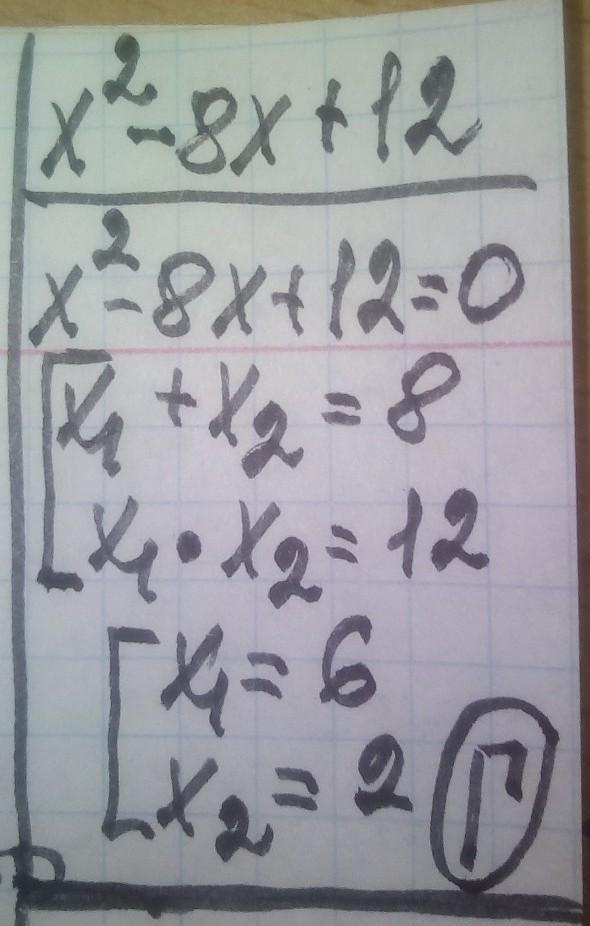 x²-8x+12
x²-8x+12=0
x₁+x₂=8
x₁•x₂=12
x₁=6
x₂=2 Г